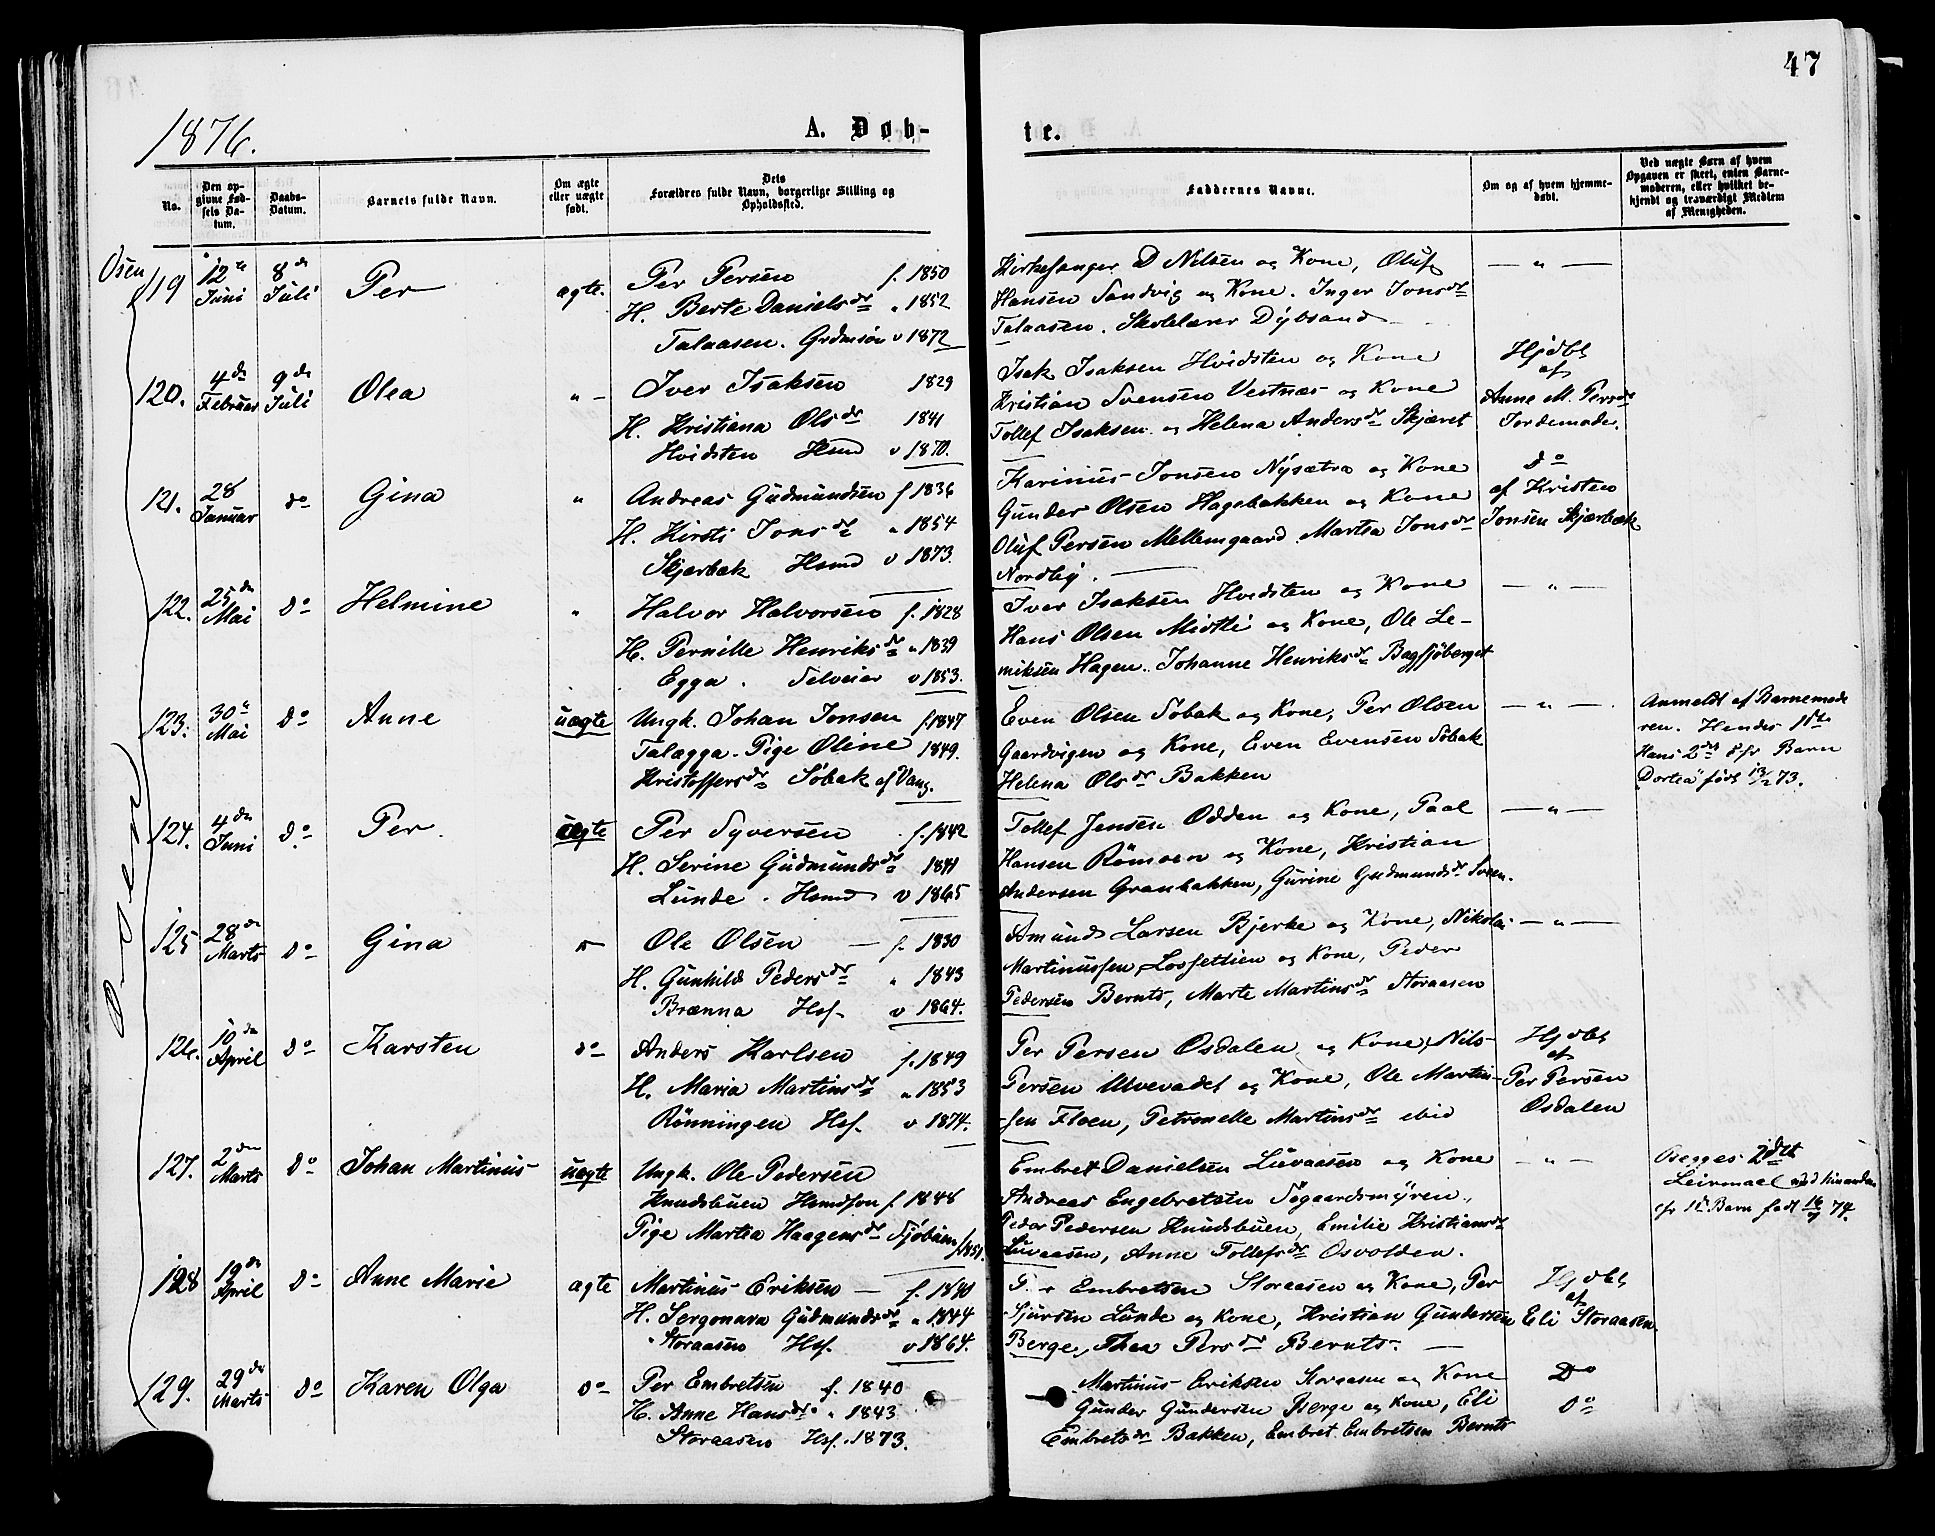 47
1876.
A. Døb-
te.
No.
Den op-
givne Fød-
sels Da-
tum.
Daabs-
Datum.
Barnets fulde Navn.
Om ægte
eller uægte
født.
Dets
Forældres fulde Navn, borgerlige Stilling og
Opholdssted.
Faddernes Navne.
Om og af hvem hjemme-
døbt.
Ved uægte Børn af hvem
Opgaven er skeet, enten Barne-
moderen, eller hvilket be-
kjendt og troværdigt Medlem
af Menigheden.
Osen
119
12te
Juni
8de
Juli
Per
ægte.
Per Persen f. 1850
H. Berte Danielsdr " 1852
Talaasen. Grdmsön v 1872
Kirkesanger D Nilsen og Kone, Oluf
Hansen Sandvig og Kone. Inger Jonsdr
Talaasen. Skolelærer Dybsand
— " —
120.
4de
Februar
9de
Juli
Olea
" —
Iver Isaksen 1829
H. Kristiana Olsdr 1841
Hvidsten Hsmd v 1870.
Isak Isaksen Hvidsten og Kone
Kristian Svensen Vestnæs og Kone
Tollef Isaksen og Helena Andersdr Skjæret
Hjdbt
af
Anne M. Persdr
Jordemoder.
121.
28
Januar
do
Gina
"
Andreas Gudmundsen f 1836
H. Kirsti Jonsdr " 1854
Skjærbæk Hsmd v 1873.
Karinus Jonsen Nysætra og Kone
Gunder Olsen Hagebakken og Kone
Oluf Persen Mellemgaard. Martea Jonsdr
Nordlig.
Do
af Kristen
Jonsen Skjærbæk
122.
25de
Mai
Do
Helmine
"
Halvor Halvorsen f. 1828
H. Pernille Henriksdr " 1839
Egga. Selveier v 1853.
Iver Isaksen Hvidsten og Kone
Hans Olsen Miotti og Kone, Ole Le-
miksen Hagen. Johanne Henriksdr Bagsjöberget
— " —
123.
30te
Mai
Do
Anne
uægte
Ungk. Johan Jonsen f. 1847
Talægga. Pige Oline 1849.
Kristoffersdr Söbak af Vang.
Even Olsen Söbak og Kone, Per Olsen
Gaardvigen og Kone, Even Evensen Söbak
Helena Olsdr Bakken
— " —
Anmeldt af Barnemode
ren. Hendes 1ste
Hans 2det
Dortea født 13/2 73.
124.
4de
Juni
do
Per.
uægte
Per Syversen f. 1842
H. Serine Gudmundsdr 1841
Lunde. Hsmd v 1865
Tollef Jensen Odden og Kone, Paal
Hansen Römoen og Kone, Kristian
Andersen Granbakken, Gurine Gudmundsdr Sveen.
— " —
125
28de
Marts
do
Gina
Ole Olsen — f. 1830
H. Gunhild Pedersdr " 1843
Brænna Hsf. v 1864.
Amund Larsen Bjerke og Kone, Nikolai
Martinussen Lossetlien og Kone, Peder
Pedersen Bernts, Marte Martinsdr Storaasen
— " —
126.
10de
April
do
Karsten
do
Anders Karlsen f. 1849
H. Maria Martinsdr " 1853
Rönningen Hsf. v 1874.
Per Persen Osdalen og Kone, Nils
Persen Ulvevadet og Kone, Ole Martin-
sen Floen, Petronelle Martinsdr ibid
Hjdbt
af
Per Persen
Osdalen
127.
2den
Marts
do
Johan Martinus
uægte
Ungk. Ole Pedersen
Knudsbuen Hsmdsøn f. 1848
Pige Martea Haagensdr Sjöbuen f. 1851.
Embret Danielsen Livaasen og Kone
Andreas Engebretsen Søgaardsmyren,
Peder Pedersen Knudsbuen, Emilie Kristiansdr
Livaasen, Anne Tollefsdr Osvolden.
— " —
Begges 2det
Leiermaal med hinanden
cfr 1ste Barn født 16/7 74.
128
19de
April
do
Anne Marie
ægte
Martinus Eriksen — f. 1840
H. Sergonara Gudmundsdr " 1844
Storaasen Hsf. v 1864.
Embretsen Storaasen og Kone, Per
Sjursen Lunde og Kone, Kristian Gundersen
Berge, Thea Persdr Bernts. —
Hjdbt
af
Eli Storaasen.
129.
29de
Marts
do
Karen Olga
do
Per Embretsen f. 1840
H. Anne Hansdr " 1843
Storaasen Hsf. 1873.
Martinus Eriksen Storaasen og Kone
Gunder Gundersen Berge og Kone, Eli
Embretsdr Bakken, Embret Embretsen Bernts
Do
Do